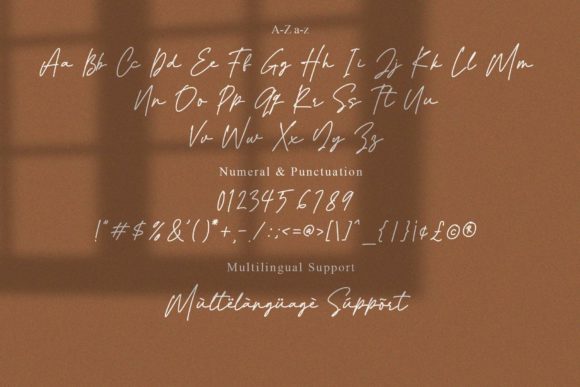 A-Z a-z
Aa Bb Cc Dd Ee Ff Gg Hh Ii Jj Kk Ll Mm
Nn Oo Pp Qq Rr Ss Tt Uu
Vv Ww Xx Yy Zz
Numeral & Punctuation
0123456789
!"#$%&'()*+,-./:;<=@>[\]^_{|}¡¢£©®
Multilingual Support
Mùltëlàngüagè Súppõrt